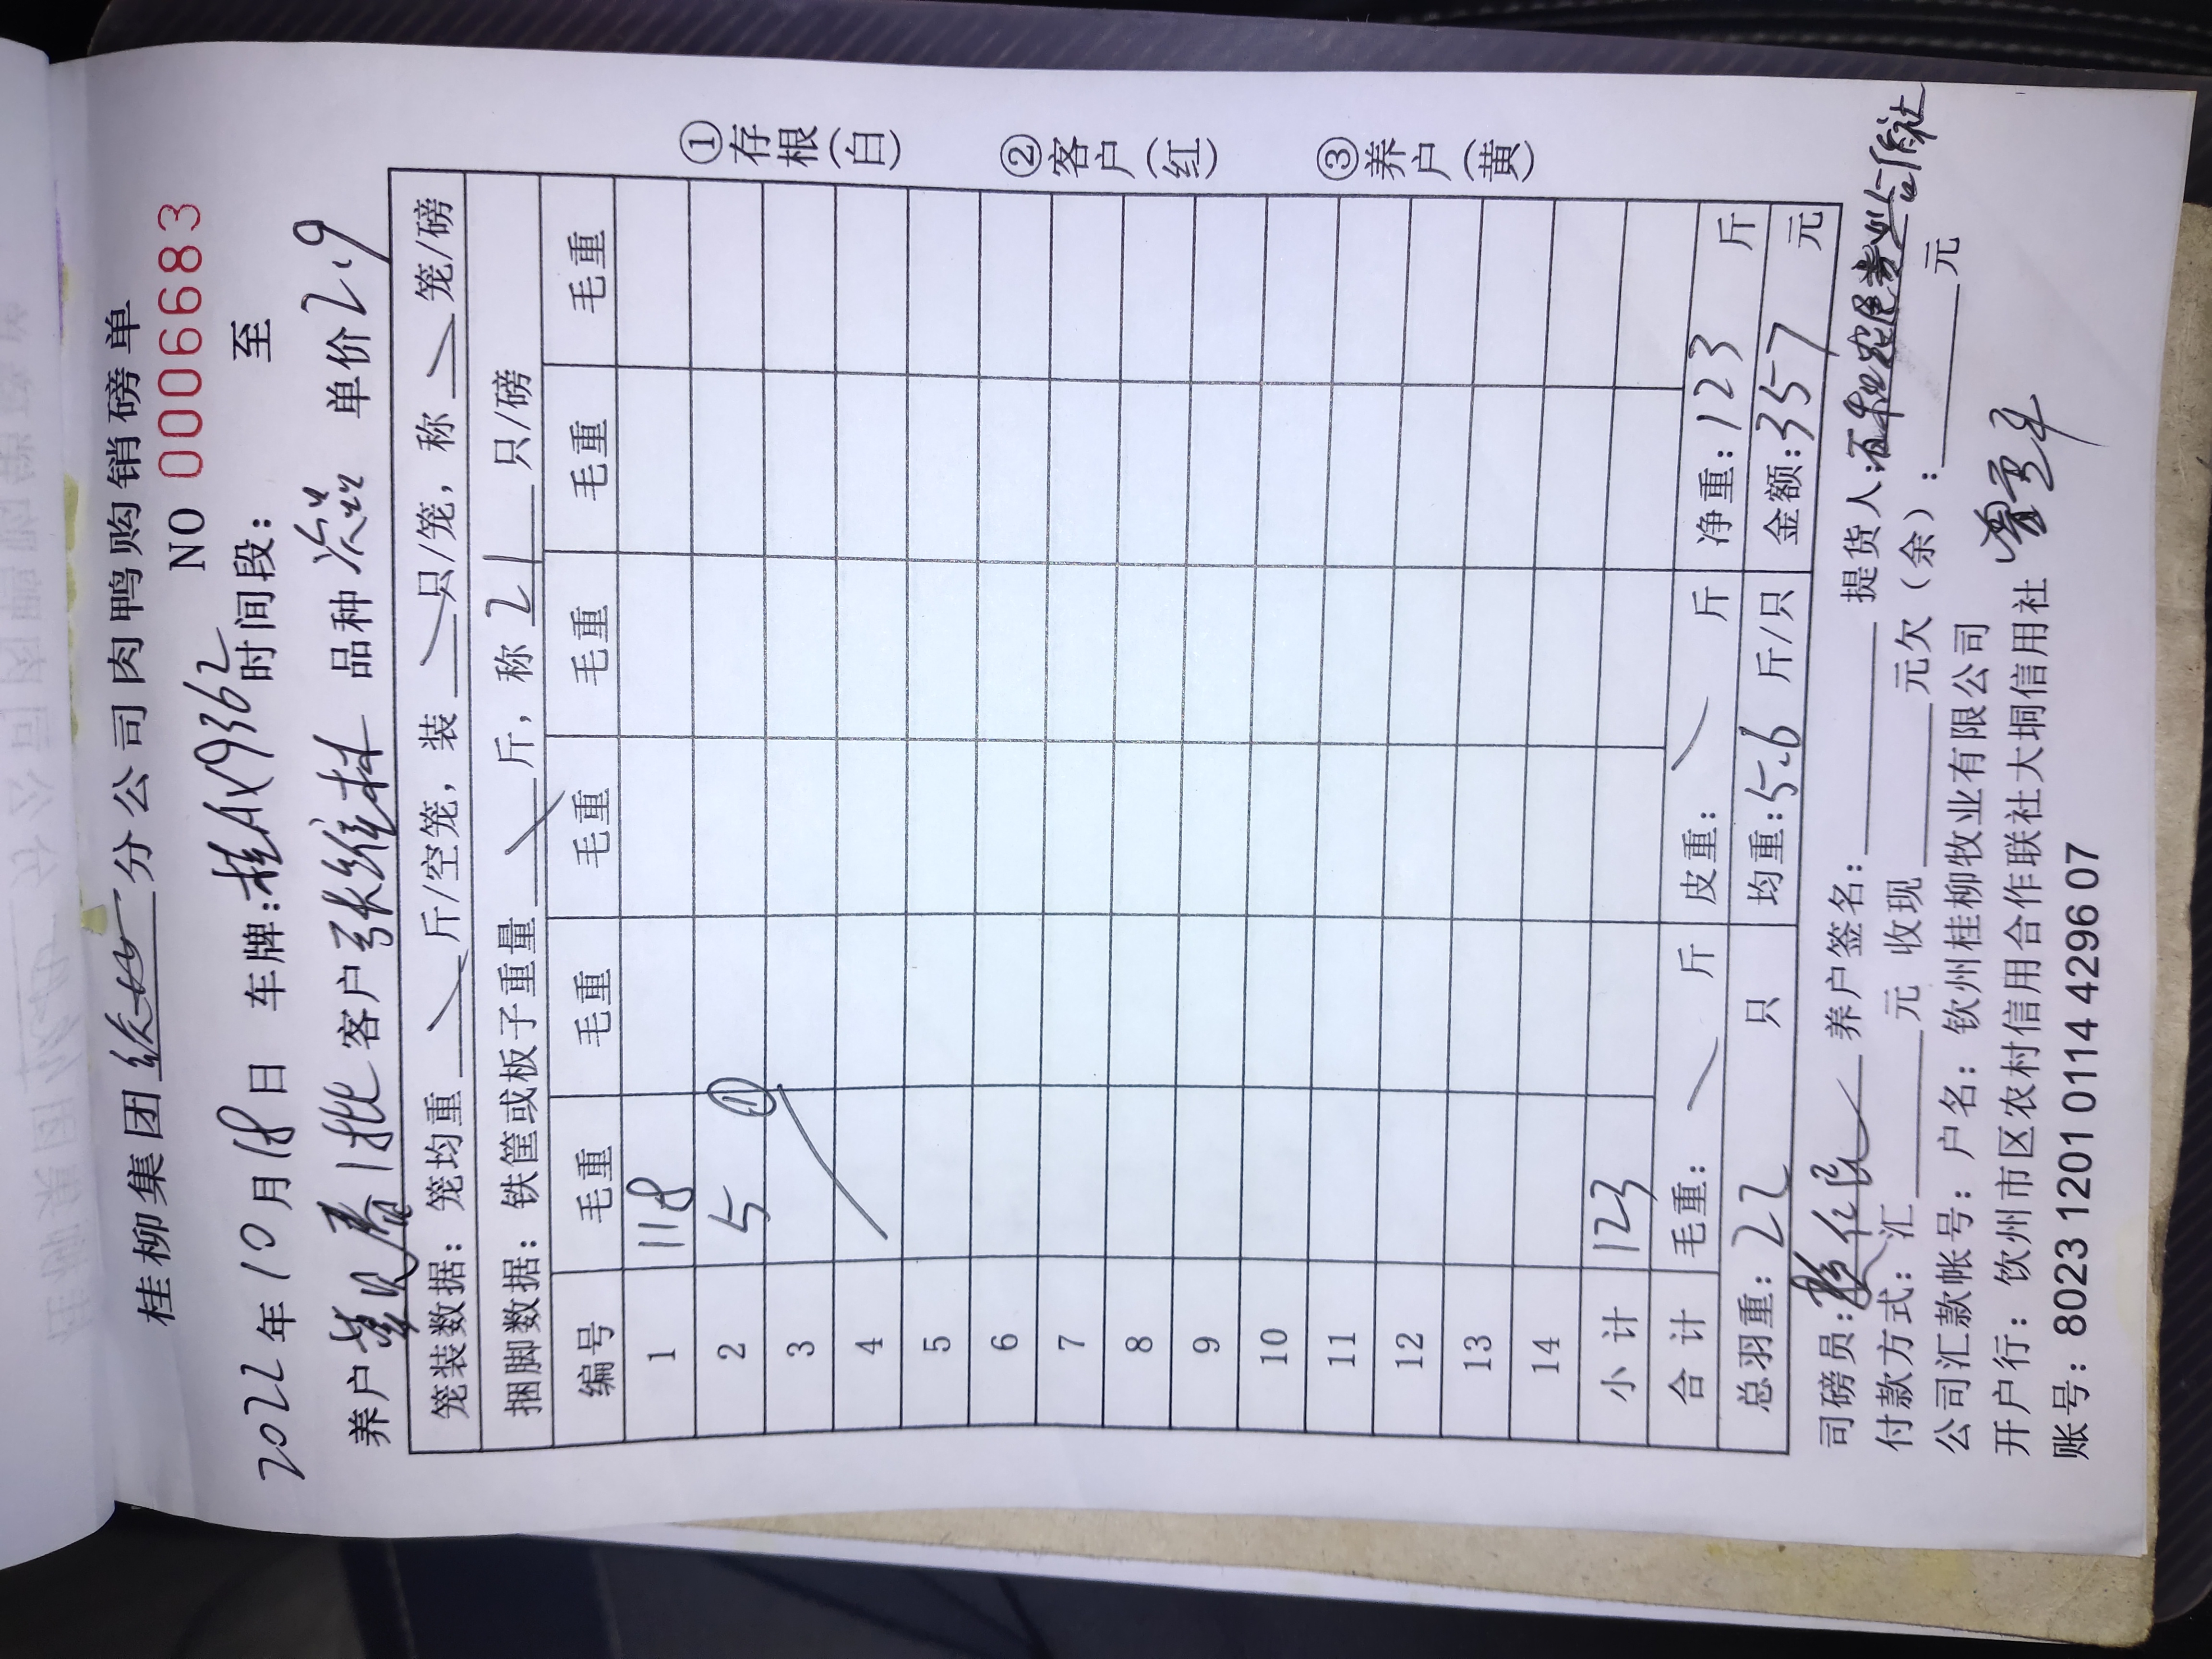 桂柳集团 分公司肉鸭购销磅单
NO 0006683
2022年10月18日 车牌:桂AV9362 时间段: 至
养户 春1批 客户张维林 品种 次品 单价2.9
笼装数据: 笼均重 斤/空笼, 装 只/笼, 称 笼/磅
捆脚数据: 铁筐或板子重量 斤, 称 21 只/磅
编号 毛重 毛重 毛重 毛重 毛重 毛重
1 118
2 5 ①
3
4
5
6
7
8
9
10
11
12
13
14
小计 123
合计 毛重: 斤 皮重: 斤 净重:123 斤
总羽重: 22 只 均重:5.6 斤/只 金额:357 元
①存根(白) ②客户(红) ③养户(黄)
司磅员: 养户签名: 提货人:
付款方式: 汇 元 收现 元欠(余): 元
公司汇款帐号: 户名: 钦州桂柳牧业有限公司
开户行: 钦州市区农村信用合作联社大垌信用社
账号: 8023 1201 0114 4296 07